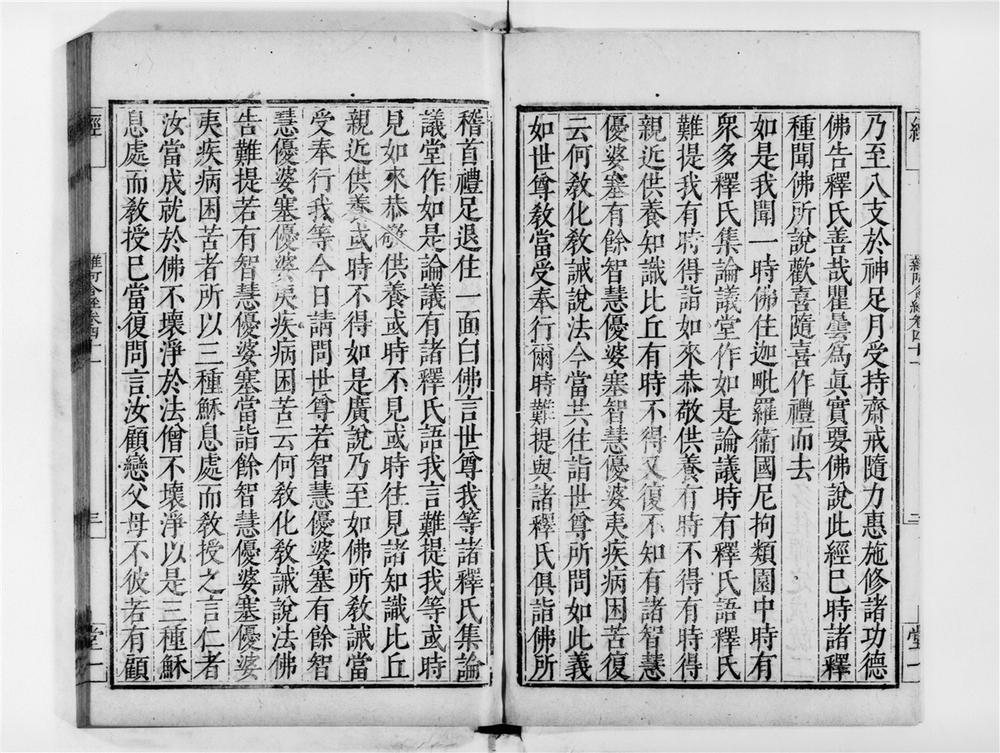 乃至八支於神足月受持齋戒隨力惠施修諸功德
佛告釋氏善哉瞿曇爲眞實要佛說此經已時諸釋
種聞佛所說歡喜隨喜作禮而去
如是我聞一時佛住迦毗羅衞國尼拘類園中時有
衆多釋氏集論議堂作如是論議時有釋氏語釋氏
難提我有時得詣如來恭敬供養有時不得有時得
親近供養知識比丘有時不得又復不知有諸智慧
優婆塞有餘智慧優婆塞智慧優婆夷疾病困苦復
云何敎化敎誡說法今當共往詣世尊所問如此義
如世尊敎當受奉行爾時難提與諸釋氏俱詣佛所
稽首禮足退住一面白佛言世尊我等諸釋氏集論
議堂作如是論議有諸釋氏語我言難提我等或時
見如來恭敬供養或時不見或時往見諸知識比丘
親近供養或時不得如是廣說乃至如佛所敎誡當
受奉行我等今日請問世尊若智慧優婆塞有餘智
慧優婆塞優婆夷疾病困苦云何敎化敎誡說法佛
告難提若有智慧優婆塞當詣餘智慧優婆塞優婆
夷疾病困苦者所以三種穌息處而敎授之言仁者
汝當成就於佛不壞淨於法僧不壞淨以是三種穌
息處而敎授已當復問言汝顧戀父母不彼若有顧
經
雜阿含經卷四十一
三
堂一